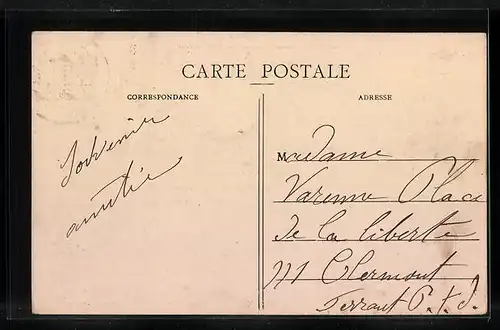 CARTE POSTALE
CORRESPONDANCE
ADRESSE
Souvenir
amitié
Madame
Varenne Place
de la liberte
Clermont
Ferrant P. d.